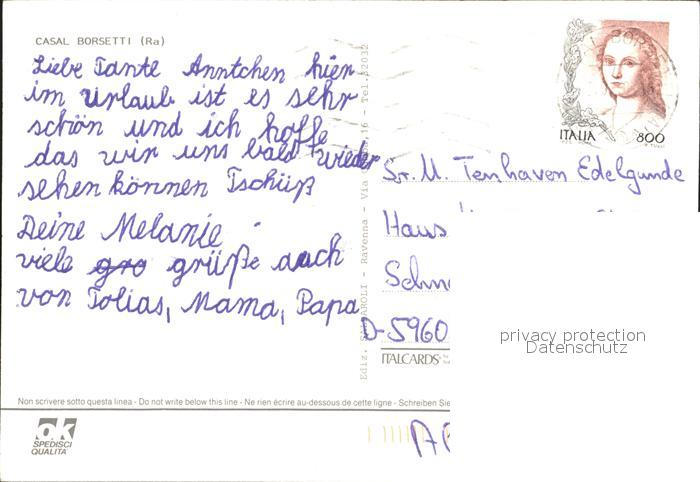 CASAL BORSETTI (Ra)
Liebe Tante Anntchen hier
im Urlaub ist es sehr
schön und ich hoffe
das wir uns bald wieder
sehen können Tschüß
Deine Melanie
viele gro grüße auch
von Tobias, Mama, Papa
Ravenna - Via
ITALIA 800
Sr. M. Tenhaven Edelgunde
Haus
D-5960
ITALCARDS
privacy protection
Datenschutz
Non scrivere sotto questa linea - Do not write below this line - Ne rien écrire au-dessous de cette ligne - Schreiben Sie
ok
SPEDISCI
QUALITA'